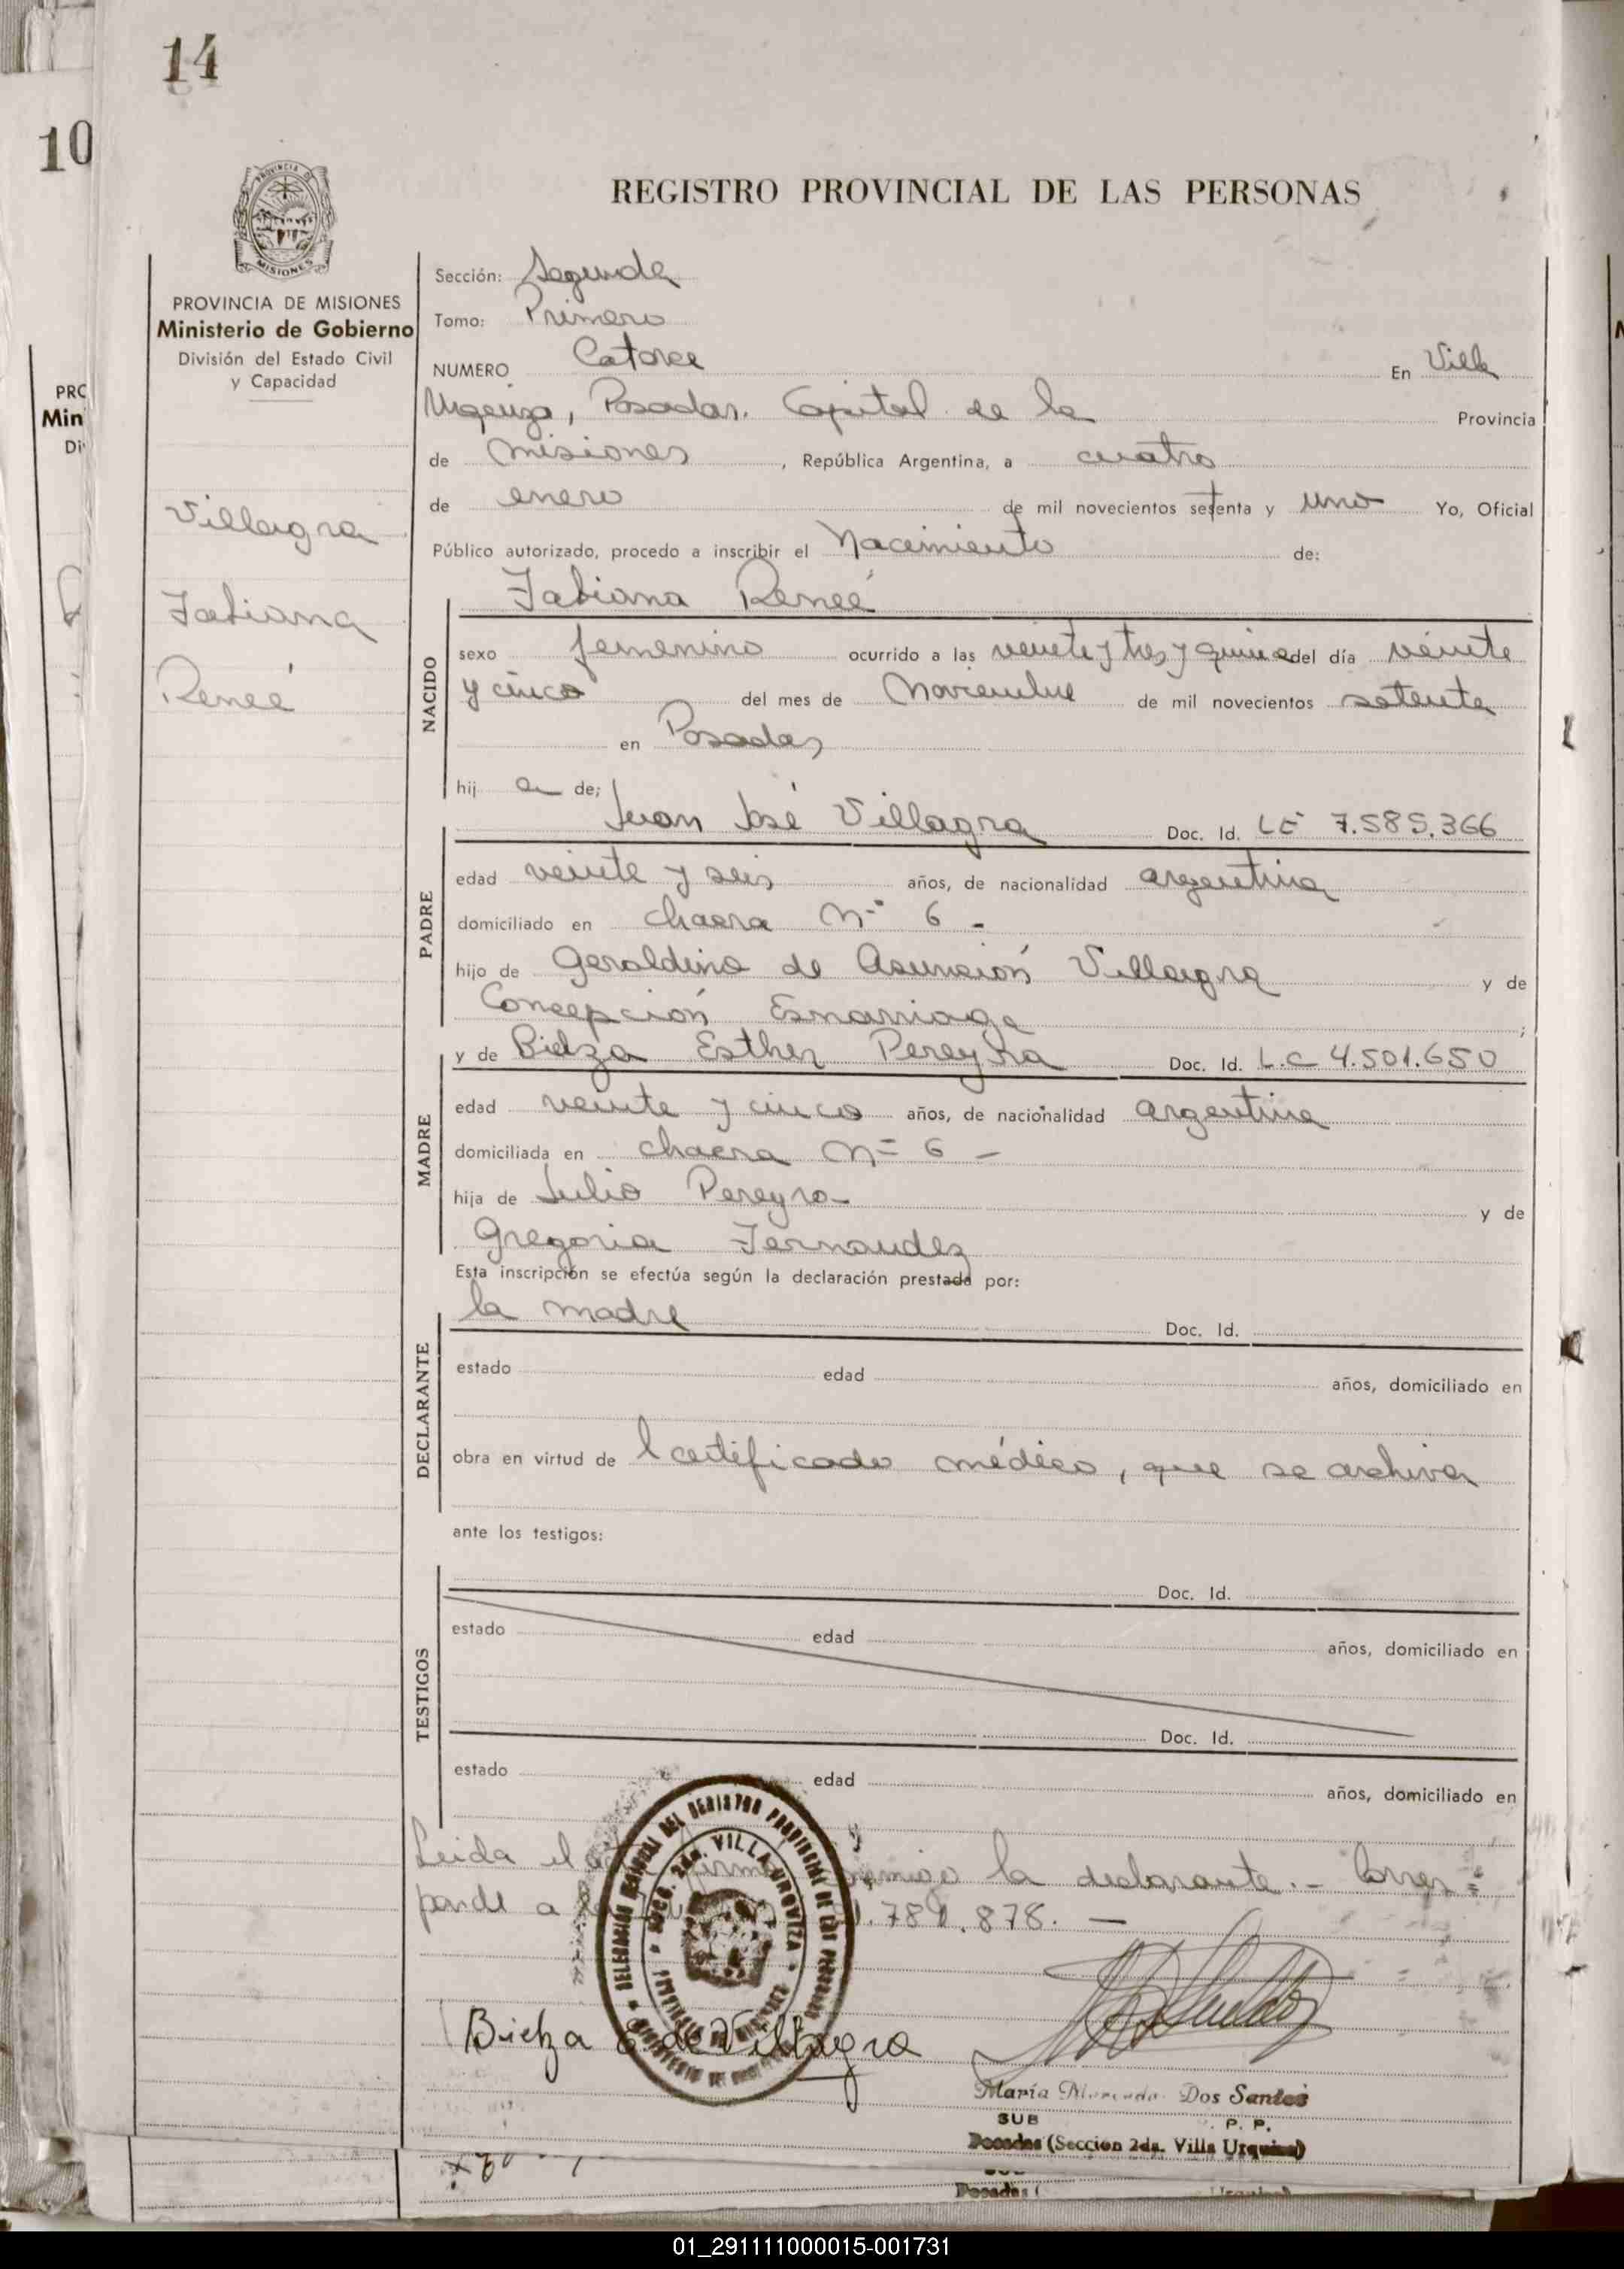 14
10
REGISTRO PROVINCIAL DE LAS PERSONAS
PROVINCIA DE
MISIONES
PROVINCIA DE MISIONES
Ministerio de Gobierno
División del Estado Civil
y Capacidad
PRO
Min
Di
Villagra
Fabiana
Reneé
Sección: Segunda
Tomo: Primero
NUMERO Catorce En Villa
Urquiza, Posadas. Capital de la Provincia
de Misiones, República Argentina, a cuatro
de enero de mil novecientos setenta y uno Yo, Oficial
Público autorizado, procedo a inscribir el Nacimiento de:
Fabiana Reneé
NACIDO
sexo femenino ocurrido a las veinte y tres y quince del día veinte
y cinco del mes de Noviembre de mil novecientos setenta
en Posadas
hij a de;
Juan José Villagra Doc. Id. LE 7.585.366
PADRE
edad veinte y seis años, de nacionalidad argentina
domiciliado en chacra Nº 6 -
hijo de Geraldino de Asunción Villagra y de
Concepción Esmarriaga;
y de Bielza Esther Pereyra Doc. Id. L.C 4.501.650
MADRE
edad veinte y cinco años, de nacionalidad argentina
domiciliada en chacra Nº 6 -
hija de Julio Pereyra- y de
Gregoria Fernandez
Esta inscripción se efectúa según la declaración prestada por:
la madre Doc. Id.
DECLARANTE
estado edad años, domiciliado en
obra en virtud de l certificado médico, que se archiva
ante los testigos:
Doc. Id.
TESTIGOS
estado edad años, domiciliado en
Doc. Id.
estado edad años, domiciliado en
Leida el firma conmigo la declarante.- Corres=
ponde a .781.878. -
DELEGACION DEL REGISTRO PROVINCIAL DE LAS PERSONAS
SECC. 2da. VILLA URQUIZA
Bielza E. de Villagra
María Dos Santos
SUB P. P.
Posadas (Sección 2da. Villa Urquiza)
Posadas (
01_291111000015-001731